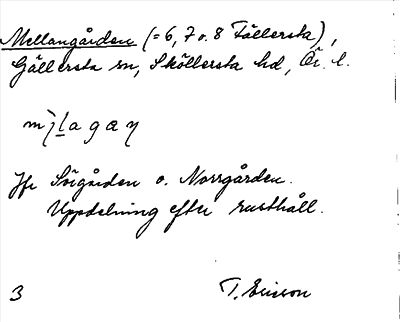 Mellangården (= 6, 7 o. 8 Tällersta),
Gällersta sn, Sköllersta hd, Ör. l.
Jfr Sörgården o. Norrgården.
Uppdelning efter rusthåll.
3 T. Ericson